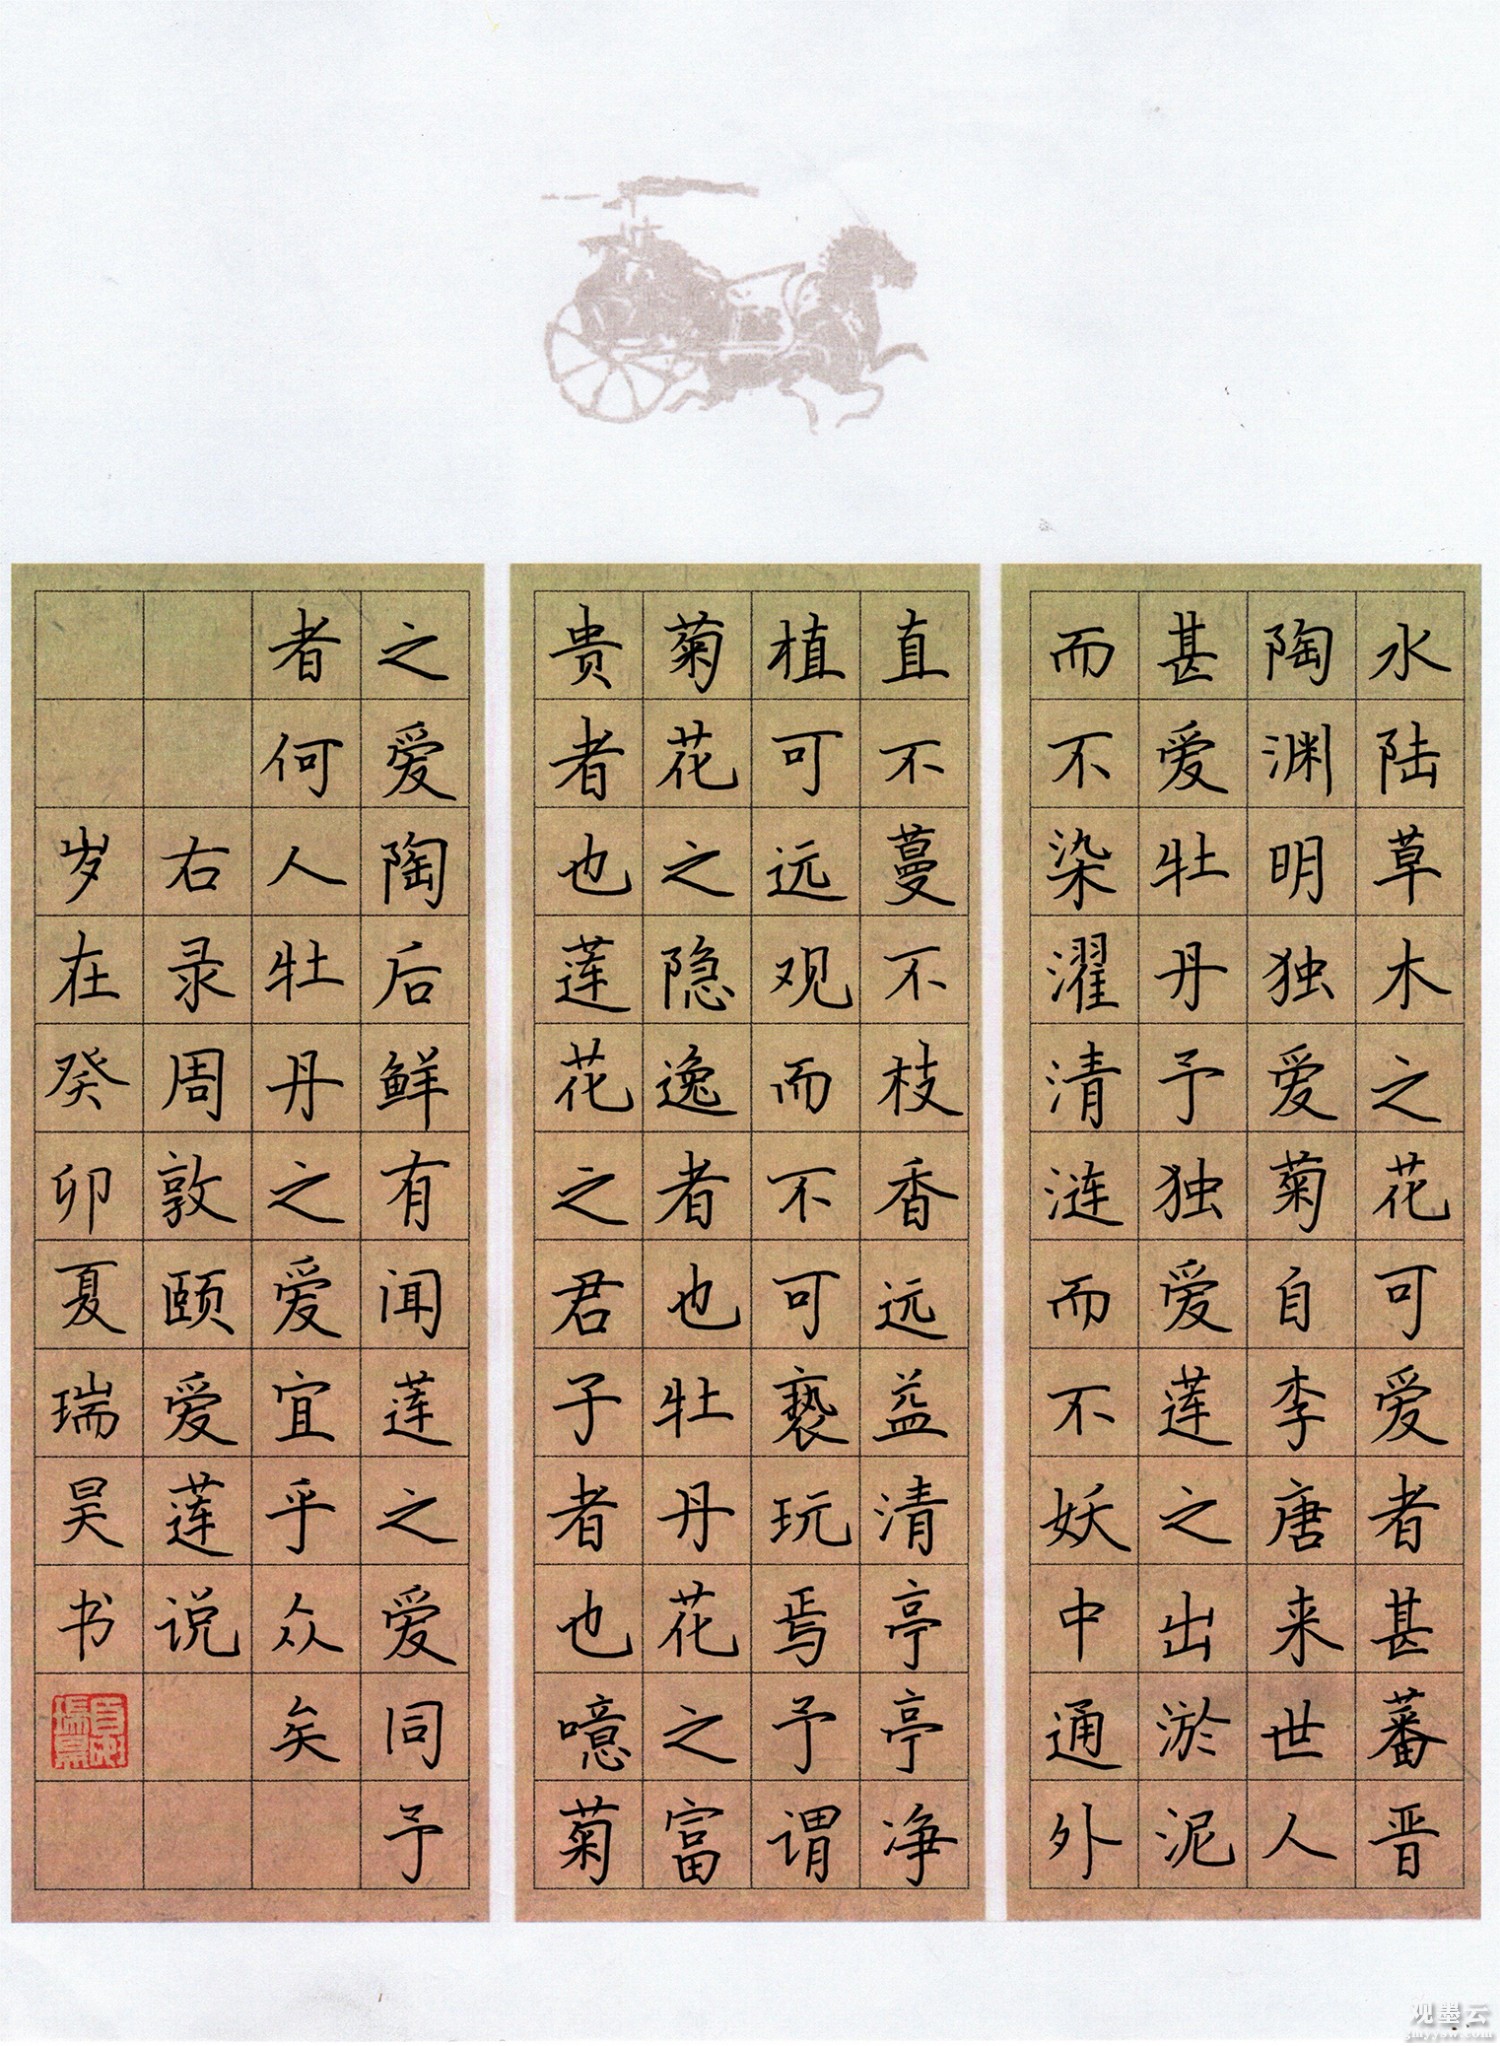 水陆草木之花可爱者甚蕃晋
陶渊明独爱菊自李唐来世人
甚爱牡丹予独爱莲之出淤泥
而不染濯清涟而不妖中通外
直不蔓不枝香远益清亭亭净
植可远观而不可亵玩焉予谓
菊花之隐逸者也牡丹花之富
贵者也莲花之君子者也噫菊
之爱陶后鲜有闻莲之爱同予
者何人牡丹之爱宜乎众矣
右录周敦颐爱莲说
岁在癸卯夏瑞昊书
观墨云